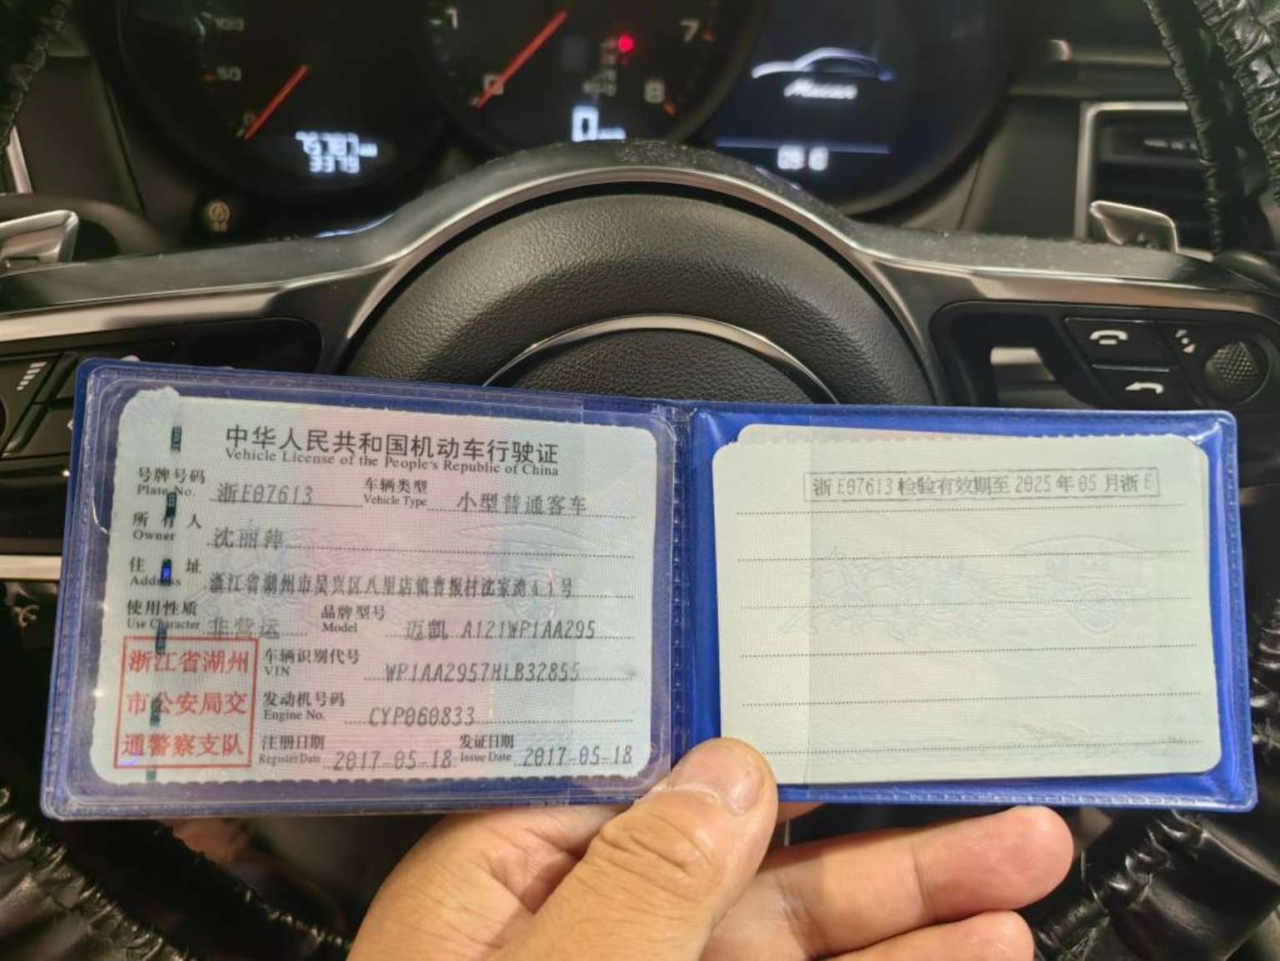 50
1
7
8
0
Macan
中华人民共和国机动车行驶证
Vehicle License of the People's Republic of China
号牌号码 浙E07613 车辆类型 小型普通客车
Plate No. Vehicle Type
所有人 沈丽萍
Owner
住址 浙江省湖州市吴兴区八里店镇曹报村沈家湾41号
Address
使用性质 非营运 品牌型号 迈凯 A121WP1AA295
Use Character Model
浙江省湖州
市公安局交
通警察支队
车辆识别代号 WP1AA2957HLB32855
VIN
发动机号码 CYP060833
Engine No.
注册日期 2017-05-18 发证日期 2017-05-18
Register Date Issue Date
浙E07613检验有效期至2025年05月浙E